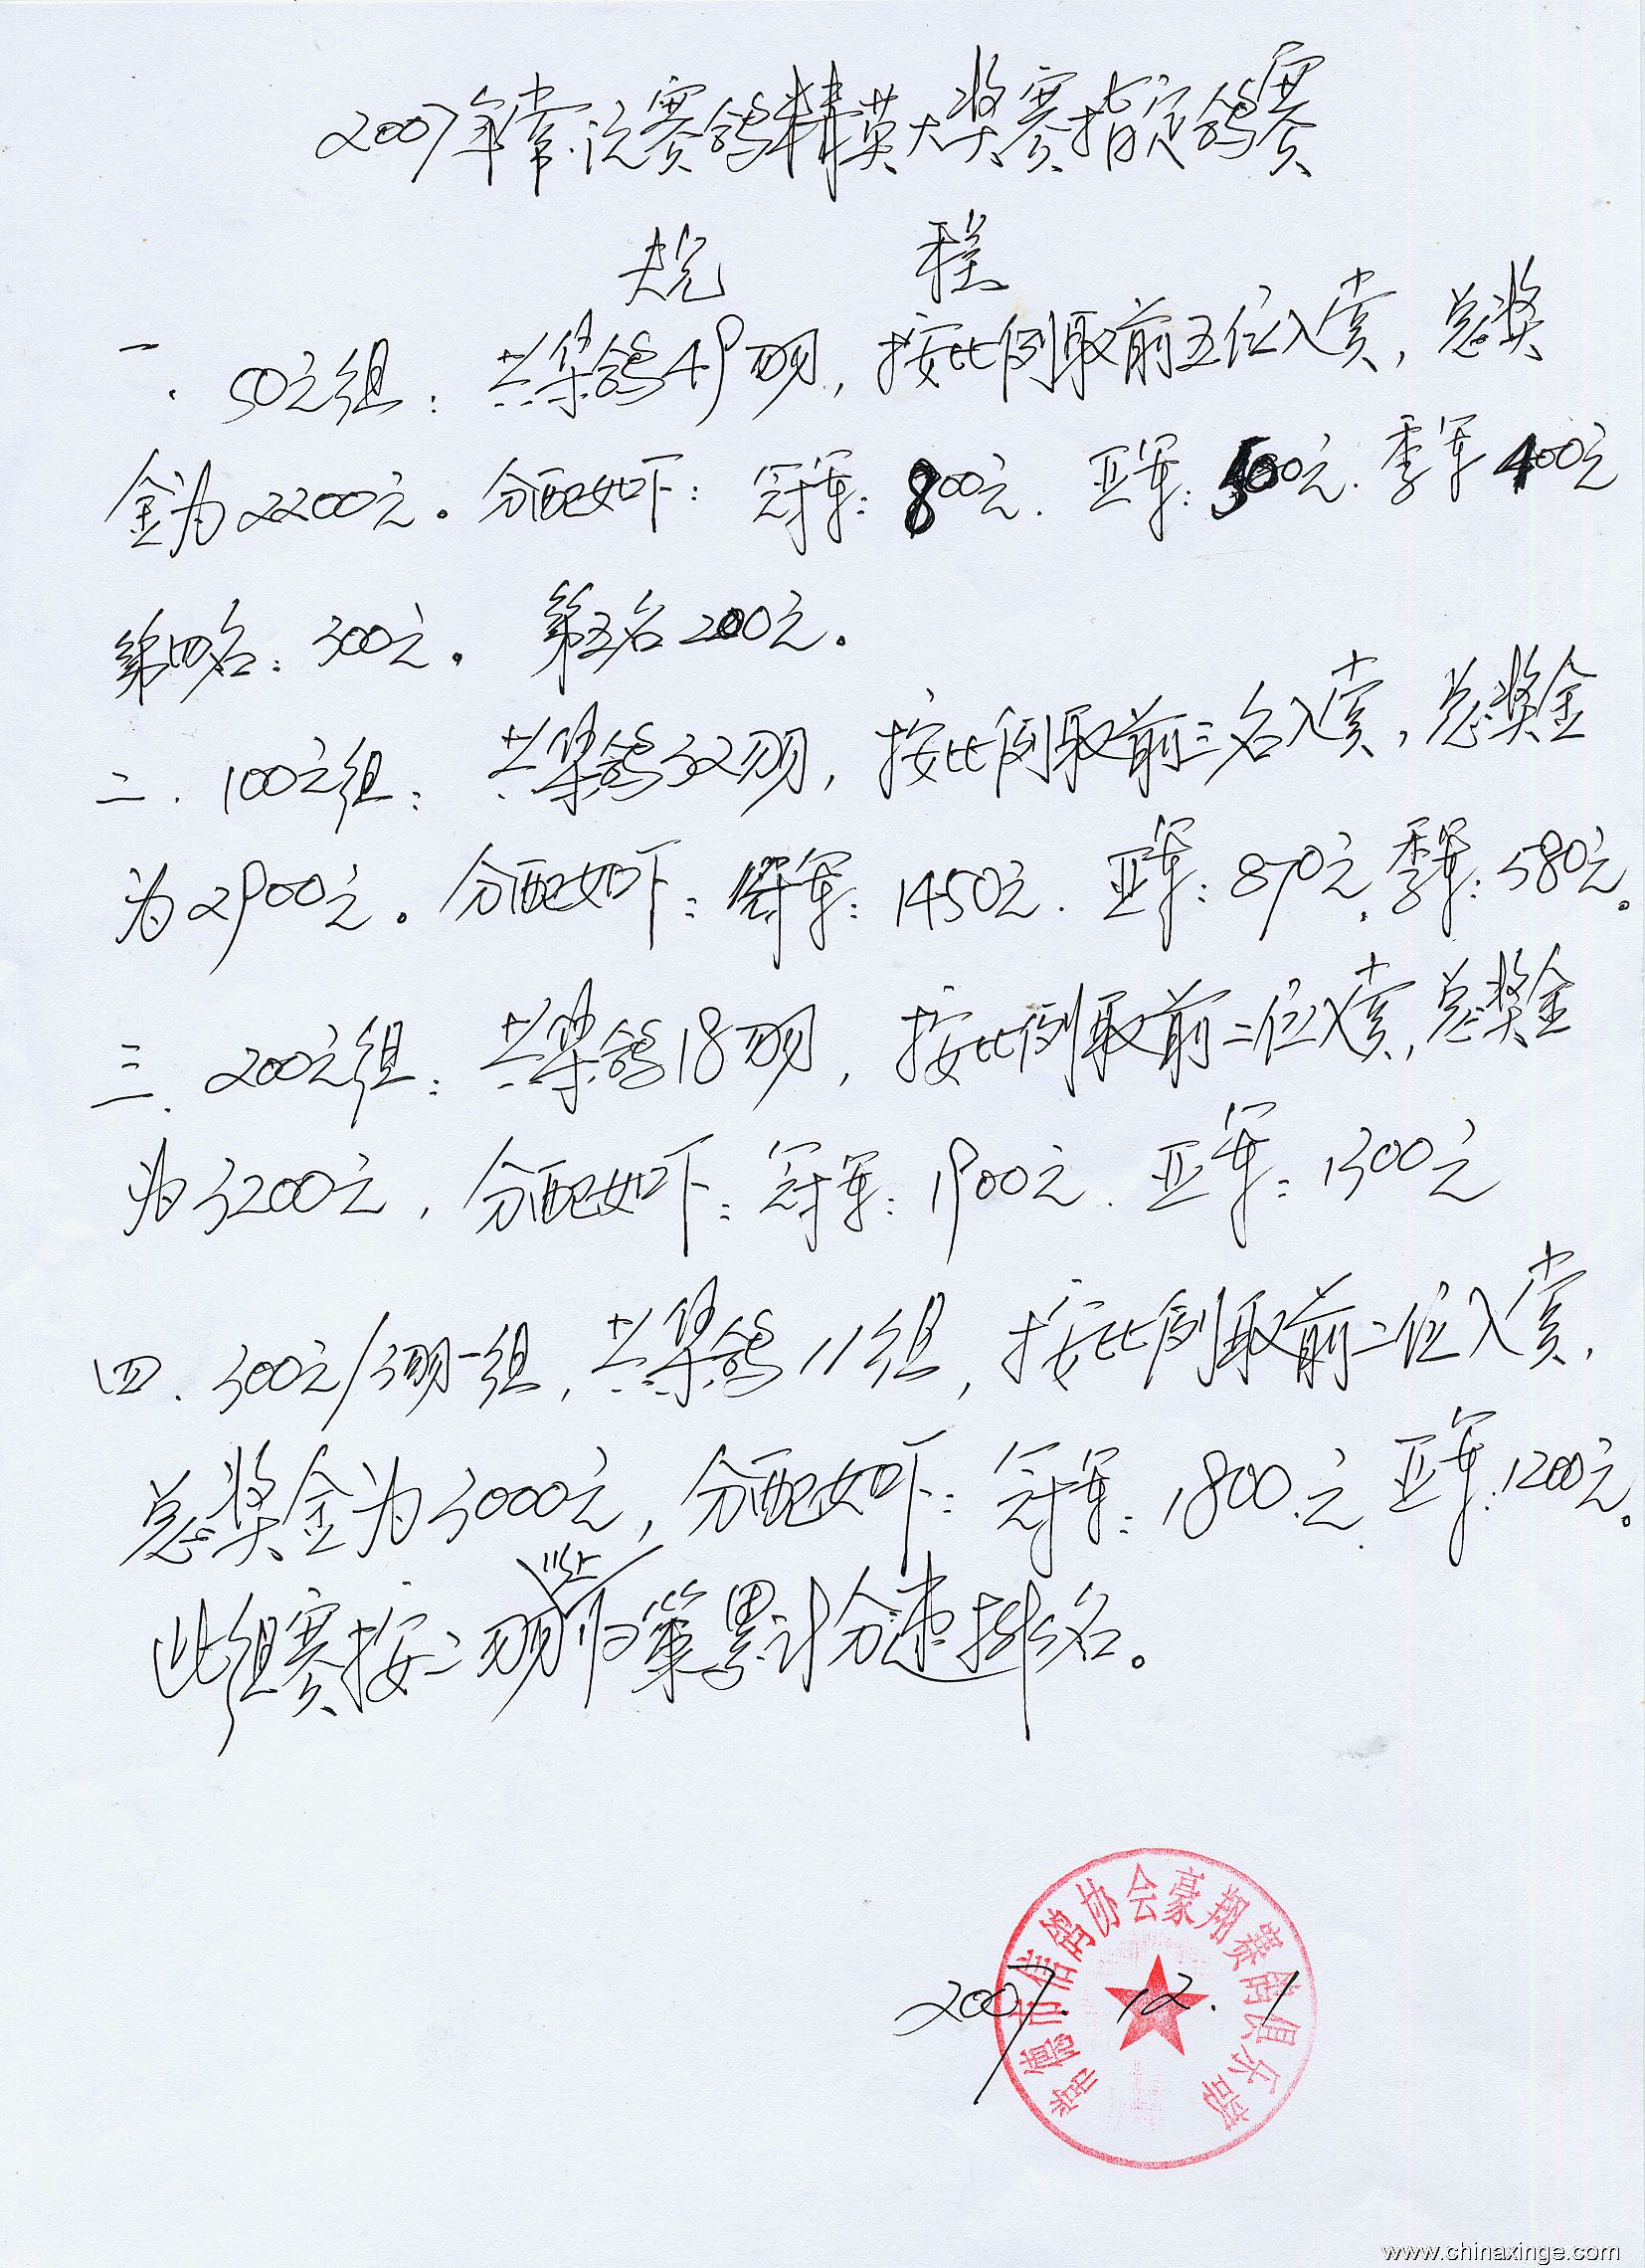 2007年常沅赛鸽精英大奖赛指定鸽赛
规 程
一. 50元组: 共集鸽49羽, 按比例取前五位入赏, 总奖
金为2200元。分配如下: 冠军: 800元. 亚军: 500元. 季军400元
第四名: 300元. 第五名200元.
二. 100元组: 共集鸽32羽, 按比例取前三名入赏, 总奖金
为2900元。分配如下: 冠军: 1450元. 亚军: 870元. 季军: 580元。
三. 200元组: 共集鸽18羽, 按比例取前二位入赏, 总奖金
为3200元, 分配如下: 冠军: 1900元. 亚军: 1300元
四. 300元/3羽一组, 共集鸽11组, 按比例取前二位入赏,
总奖金为3000元, 分配如下: 冠军: 1800.元. 亚军: 1200元。
此组赛按二羽以上归巢累计分速排名。
常德市信鸽协会豪翔赛鸽俱乐部
2007. 12. 1
www.chinaxinge.com